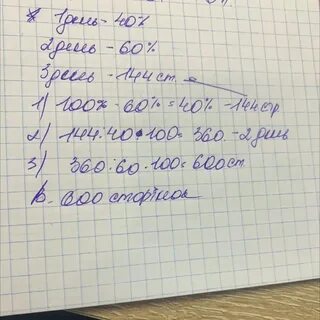 1день - 40%
2день - 60%
3день - 144 ст.
1) 100% - 60% = 40% - 144 стр
2) 144:40·100= 360 - 2 день
3) 360:60·100= 600 ст
В. 600 сторінок